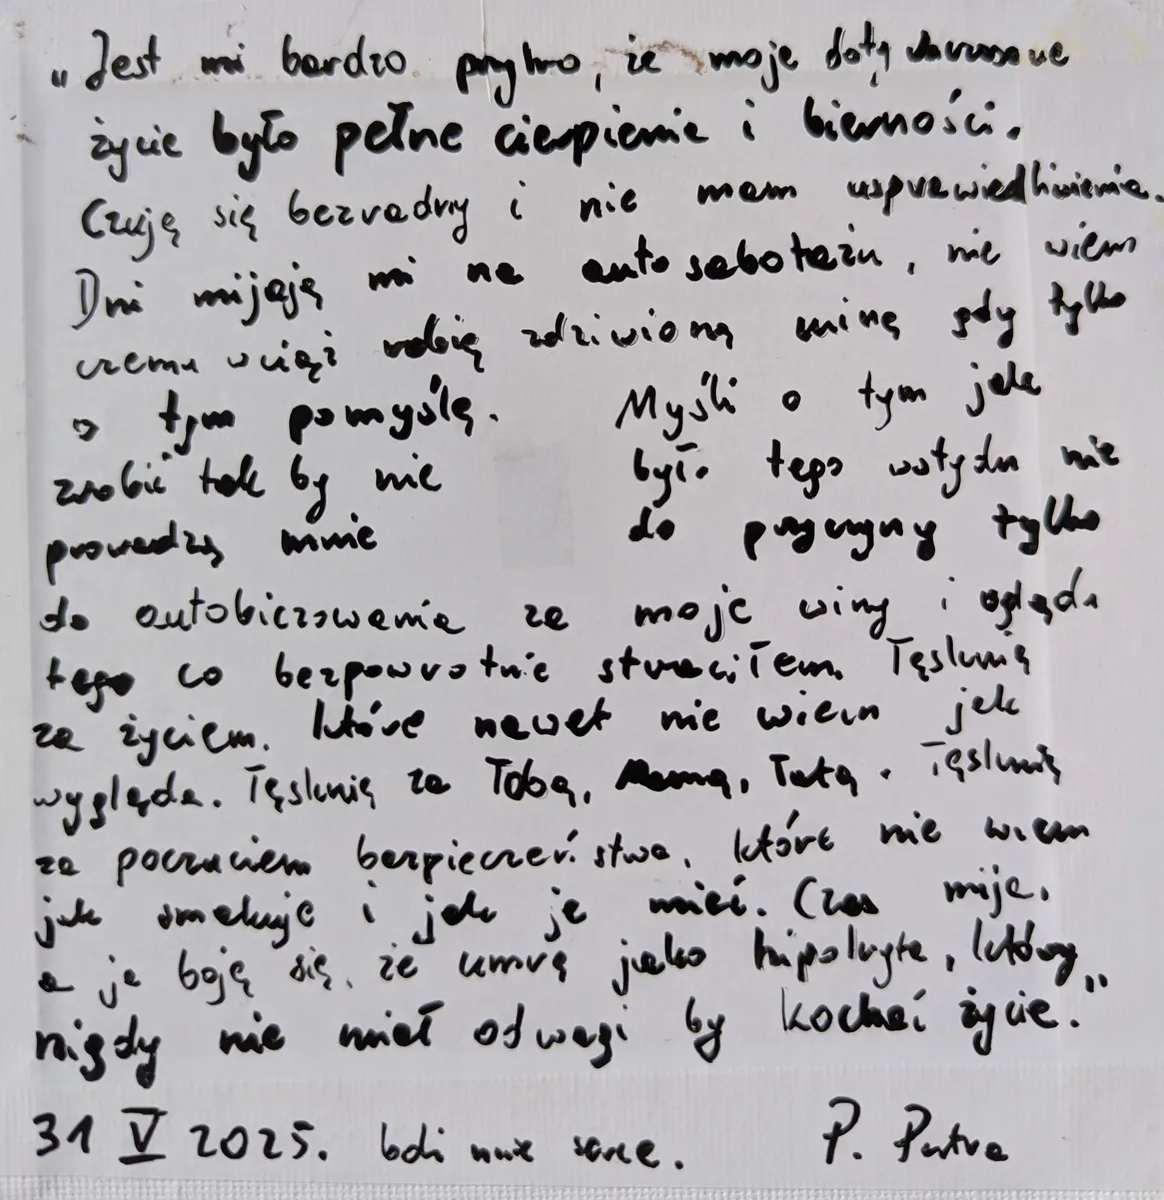 „Jest mi bardzo przykro, że moje dotychczasowe
życie było pełne cierpienia i bierności.
Czuję się bezradny i nie mam usprawiedliwienia.
Dni mijają mi na autosabotażu, nie wiem
czemu wciąż robię zdziwioną minę gdy tylko
o tym pomyślę. Myśli o tym jak
zrobić tak by nie było tego wstydu nie
prowadzą mnie do przyczyny tylko
do autobiczowania za moje winy i ogląda
tego co bezpowrotnie straciłem. Tęsknię
za życiem, które nawet nie wiem jak
wygląda. Tęsknię za Tobą, Mamą, Tatą. Tęsknię
za poczuciem bezpieczeństwa, które nie wiem
jak smakuje i jak je mieć. Czas mija,
a ja boję się, że umrę jako hipokryta, który
nigdy nie miał odwagi by kochać życie."
31 V 2025. boli mnie serce. P. Putra